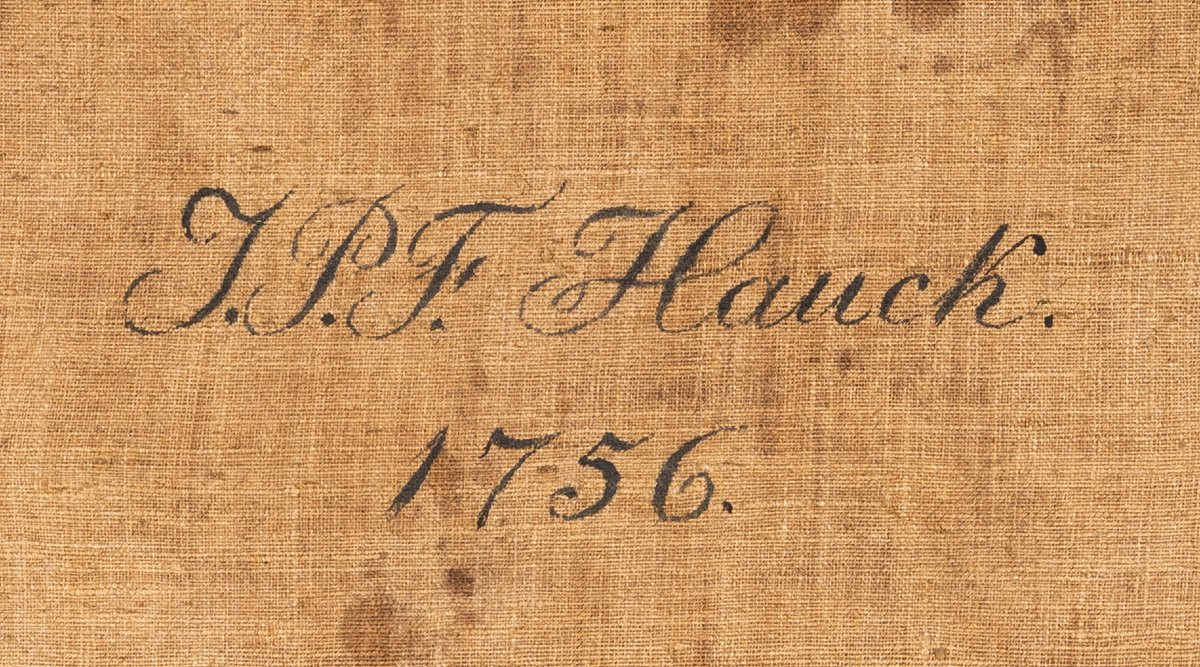 J.P.F. Hauck.
1756.